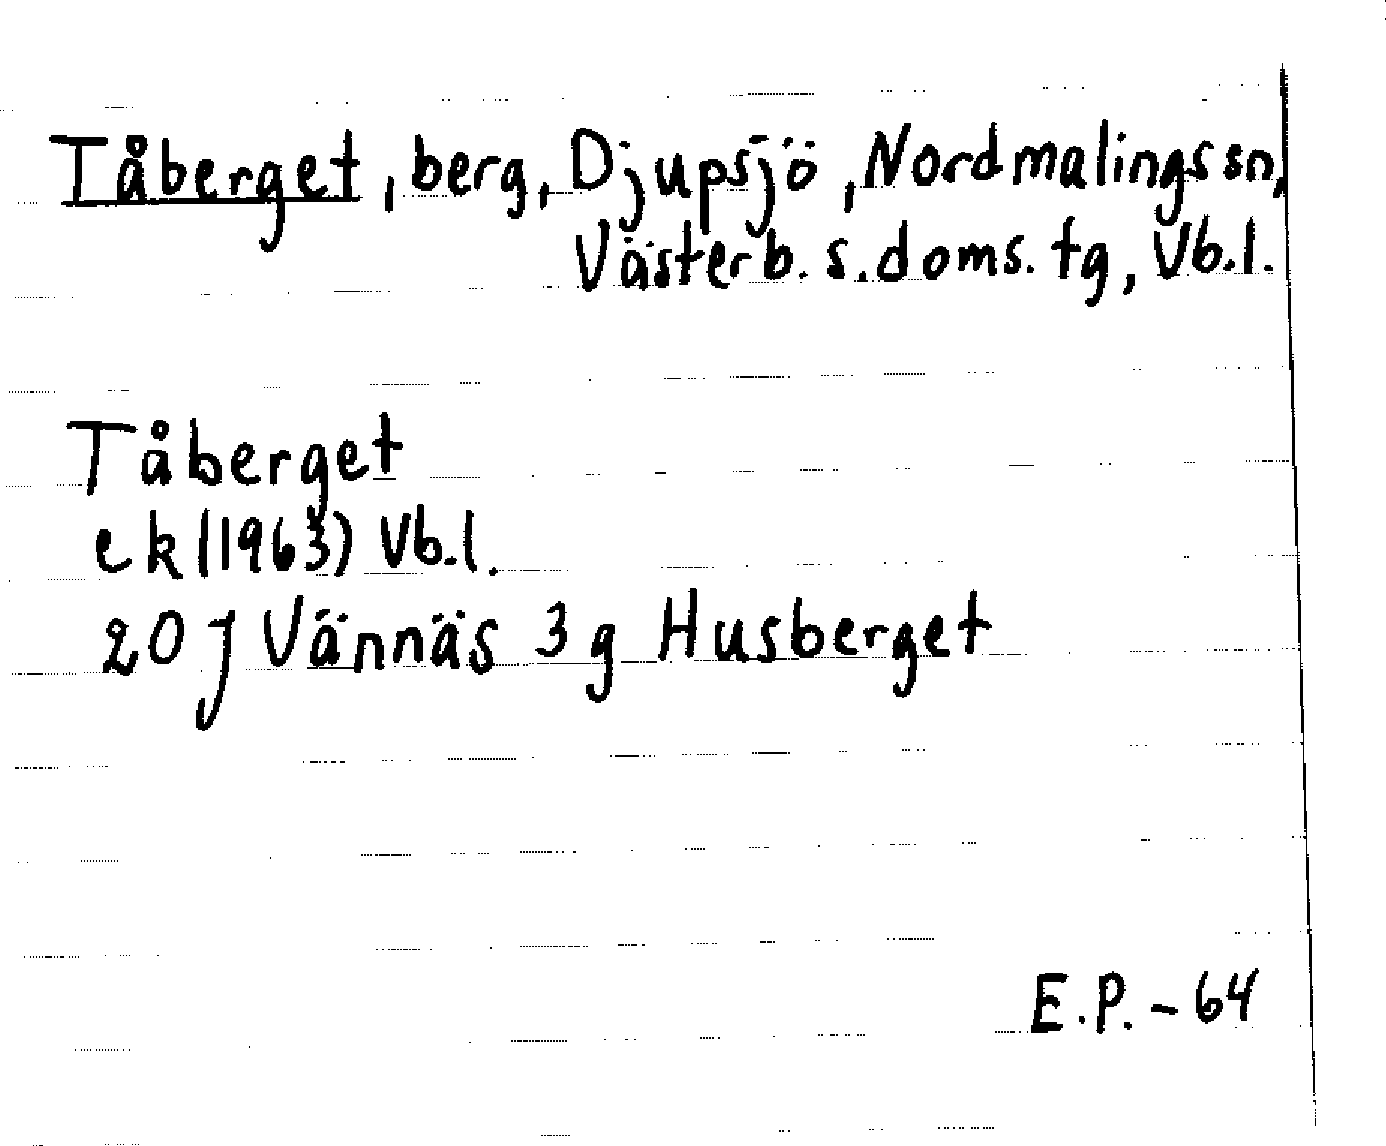 Tåberget, berg, Djupsjö, Nordmalings sn,
Västerb. s. doms. tg, Vb.l.
Tåberget
ek (1963) Vb.l.
20 J Vännäs 3 g Husberget
E.P. - 64